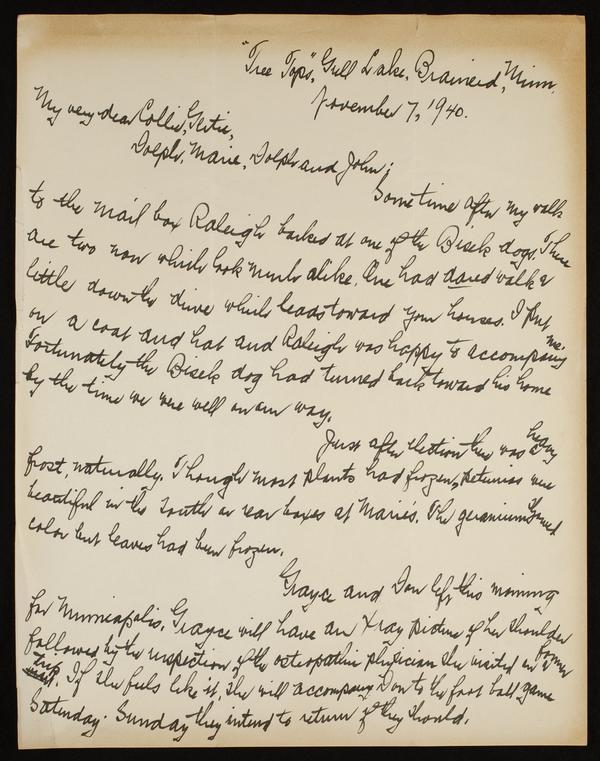 "Tree Tops", Gull Lake, Brainerd, Minn.
November 7, 1940.
My very dear Collie, 
Dolph, Marie, Dolph and John;
Sometime after my walk
to the mail box Raleigh barked at one of the Bisek dogs. There
are two now which look much alike. One had dared walk a
little down the drive which leads toward your houses. I put
on a coat and hat and Raleigh was happy to accompany me.
Fortunately the Bisek dog had turned back toward his home
by the time we were well on our way.
Just after election there was a heavy
frost, naturally. Though most plants had frozen, petunias were
beautiful in the south or rear boxes at Marie's. The geraniums showed
color but leaves had been frozen.
Grayce and Don left this morning
for Minneapolis. Grayce will have an X ray picture of her shoulder
followed by the inspection of the osteopathic physician she visited on a former
trip. If she feels like it, she will accompany Don to the foot ball game
Saturday. Sunday they intend to return if they should.